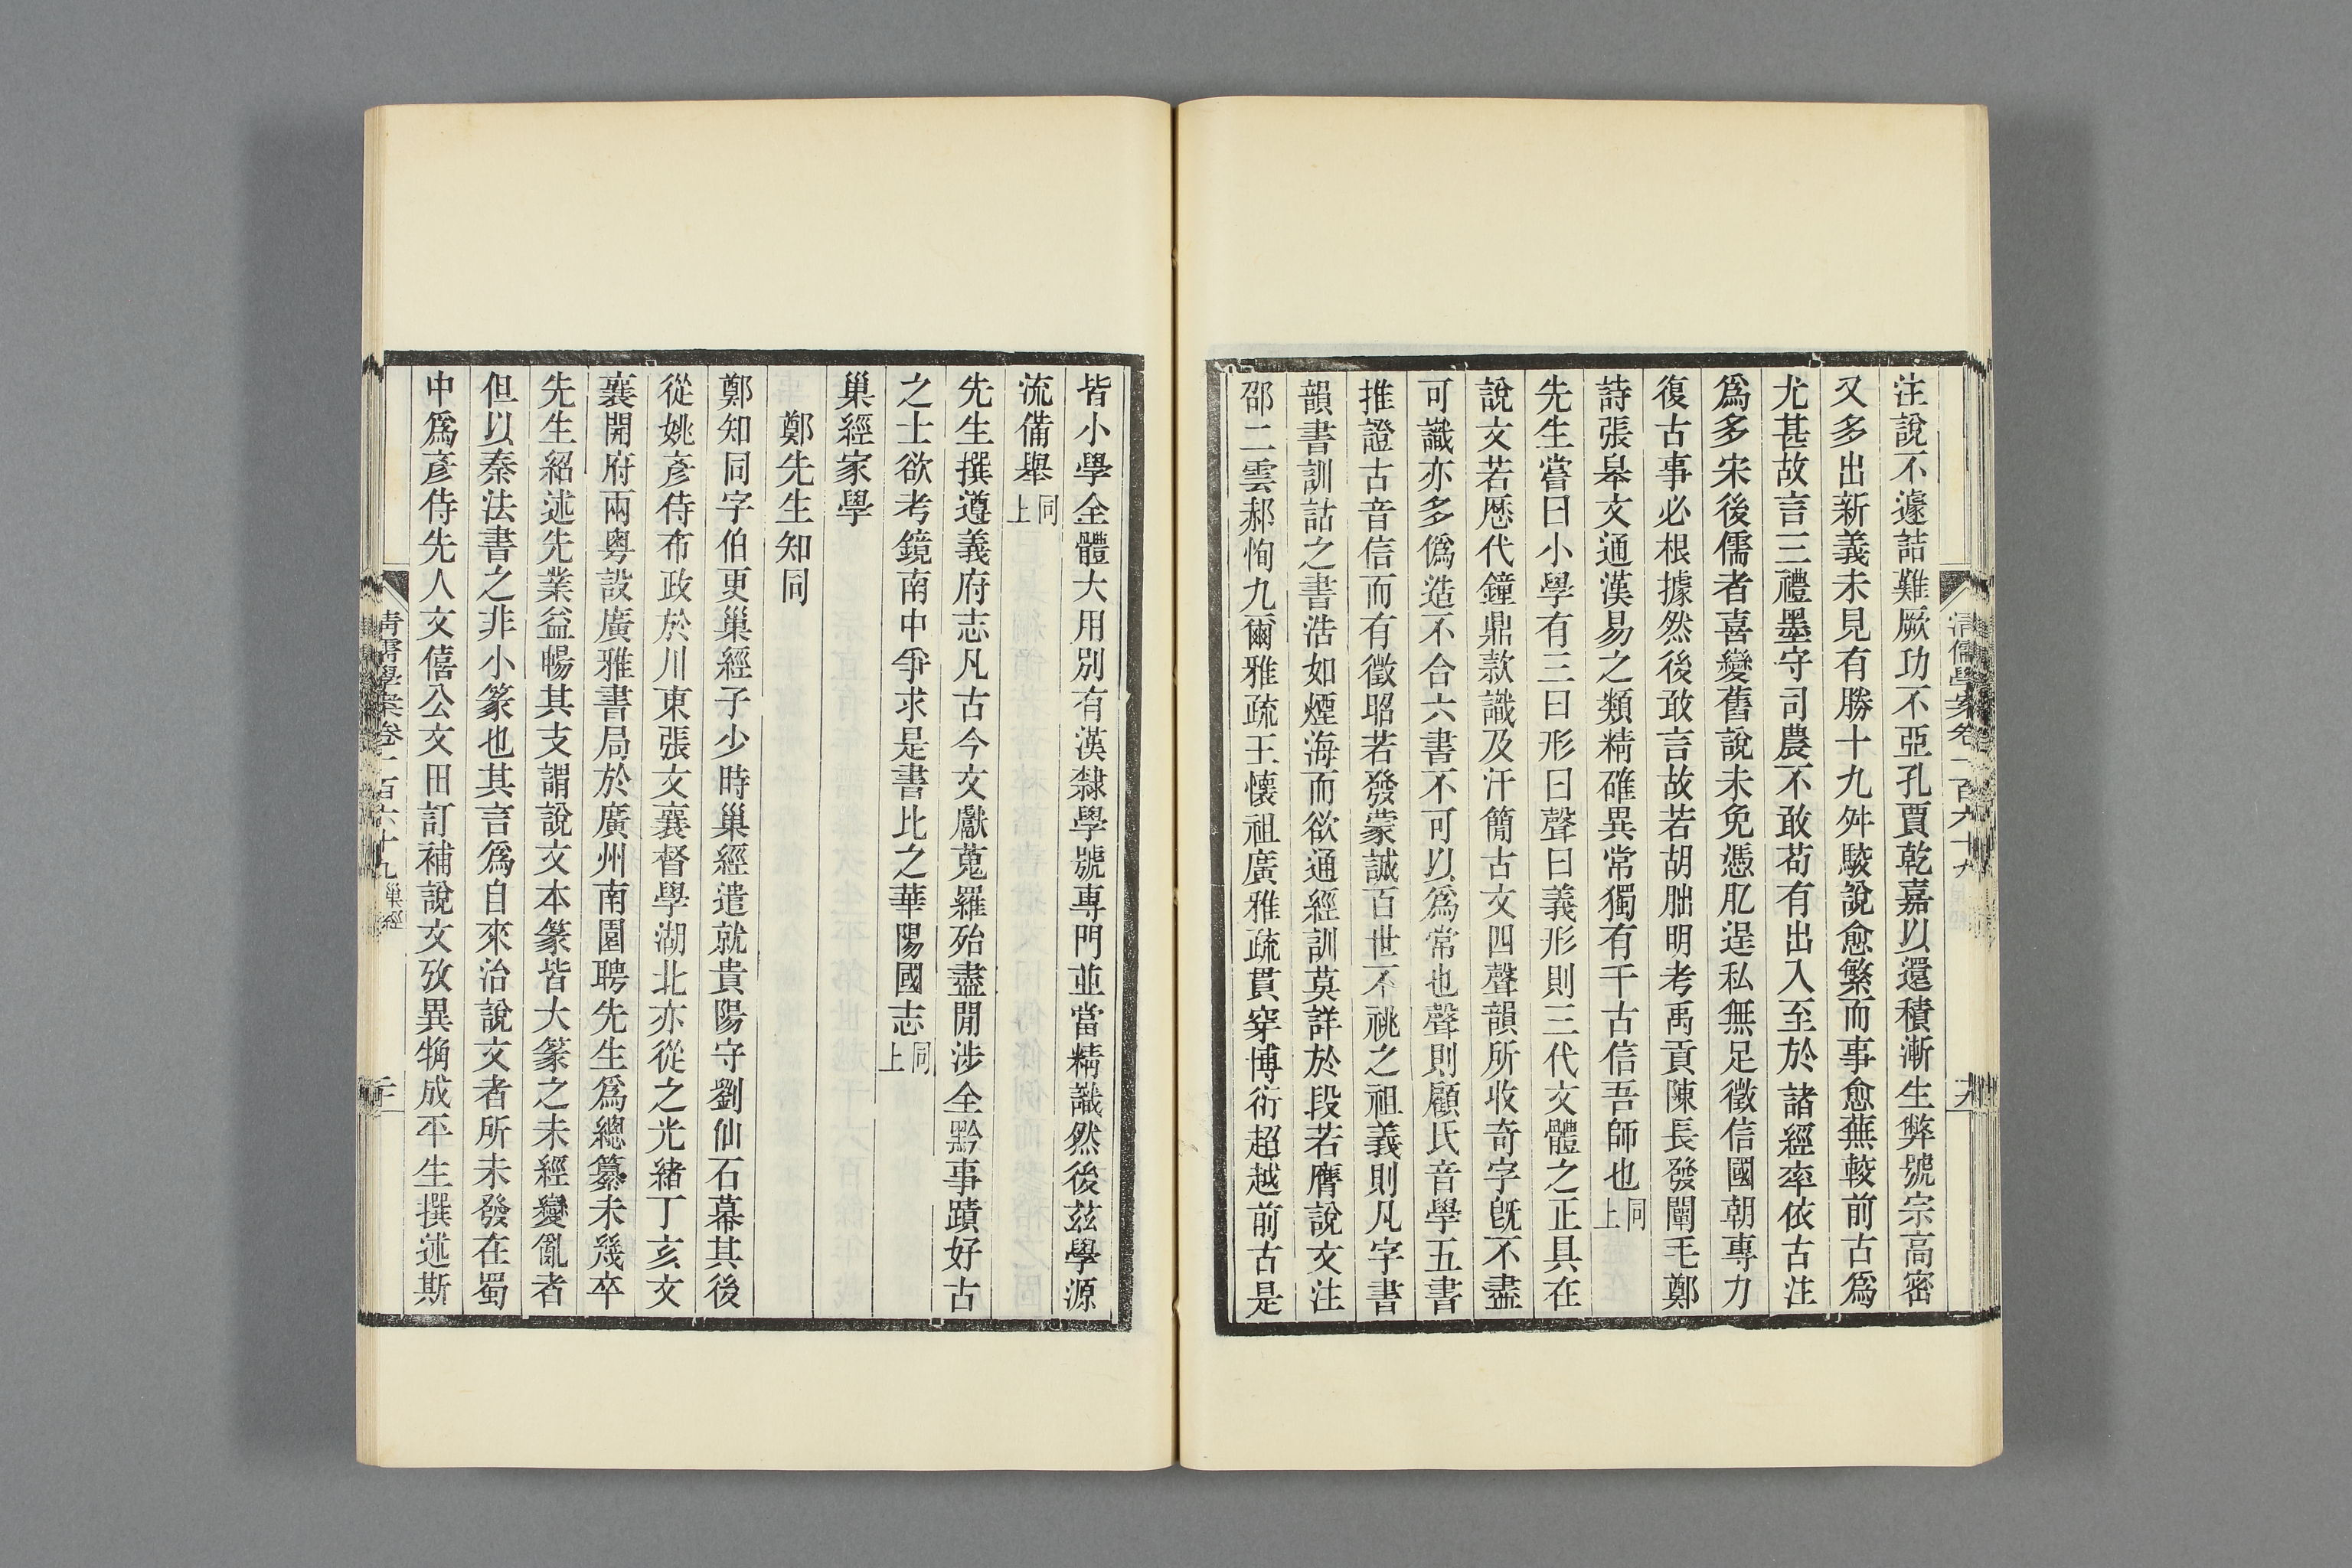 清儒學案卷一百六十九
注說不遽詰難厥功不亞孔賈乾嘉以還積漸生弊號宗高密
又多出新義未見有勝十九舛駁說愈繁而事愈蕪較前古爲
尤甚故言三禮墨守司農不敢苟有出入至於諸經率依古注
爲多宋後儒者喜變舊說未免憑肊逞私無足徵信國朝專力
復古事必根據然後敢言故若胡朏明考禹貢陳長發闡毛鄭
詩張皋文通漢易之類精確異常獨有千古信吾師也同上
先生嘗曰小學有三曰形曰聲曰義形則三代文體之正具在
說文若歷代鐘鼎款識及汗簡古文四聲韻所收奇字旣不盡
可識亦多僞造不合六書不可以爲常也聲則顧氏音學五書
推證古音信而有徵昭若發蒙誠百世不祧之祖義則凡字書
韻書訓詁之書浩如煙海而欲通經訓莫詳於段若膺說文注
邵二雲郝恂九爾雅疏王懷祖廣雅疏貫穿博衍超越前古是
皆小學全體大用別有漢隸學號專門並當精識然後茲學源
流備舉同上
先生撰遵義府志凡古今文獻蒐羅殆盡閒涉全黔事蹟好古
之士欲考鏡南中爭求是書比之華陽國志同上
巢經家學
鄭先生知同
鄭知同字伯更巢經子少時巢經遣就貴陽守劉仙石幕其後
從姚彥侍布政於川東張文襄督學湖北亦從之光緒丁亥文
襄開府兩粵設廣雅書局於廣州南園聘先生爲總纂未幾卒
先生紹述先業益暢其支謂說文本篆皆大篆之未經變亂者
但以秦法書之非小篆也其言爲自來治說文者所未發在蜀
中爲彥侍先人文僖公文田訂補說文攷異觕成平生撰述斯
清儒學案卷一百六十九 巢經 二十